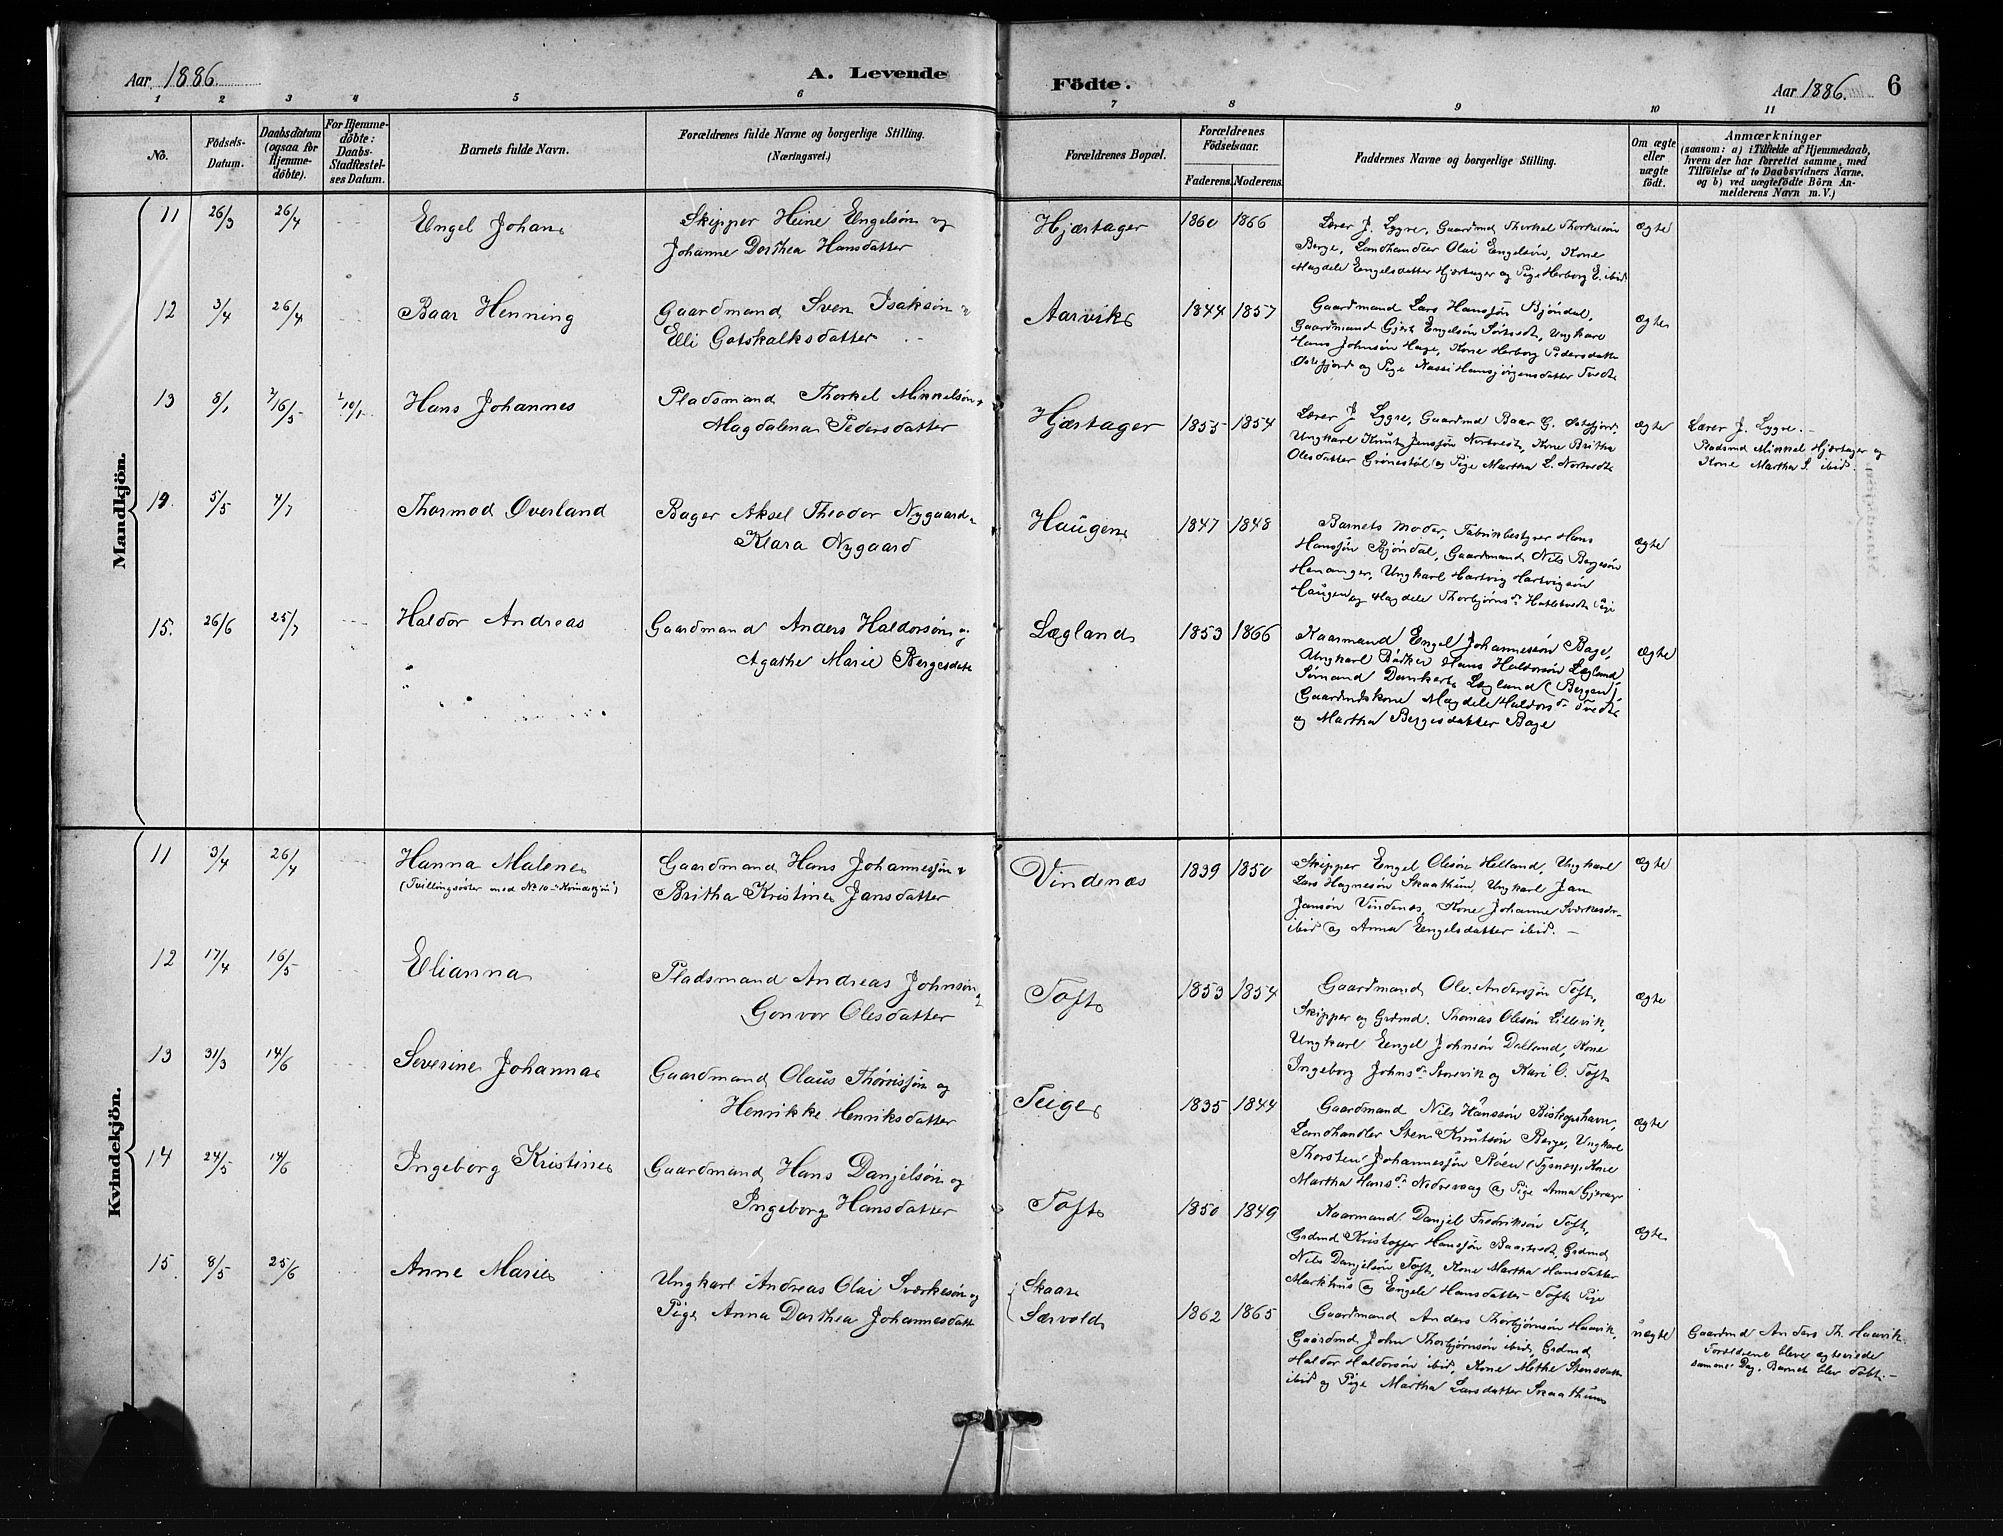 Aar 1886
A. Levende
Födte.
Aar 1886.
6
1 2 3 4 5 6 7 8 9 10 11
No.
Födsels-
Datum.
Daabsdatum
(ogsaa for
Hjemme-
döbte).
For Hjemme-
döbte:
Daabs-
Stadfæstel-
ses Datum.
Barnets fulde Navn.
Forældrenes fulde Navne og borgerlige Stilling.
(Næringsvei.)
Forældrenes Bopæl.
Forældrenes
Födselsaar.
Faderens. Moderens.
Faddernes Navne og borgerlige Stilling.
Om ægte
eller
uægte
födt.
Anmærkninger
(saasom: a) i Tilfælde af Hjemmedaab,
hvem der har forrettet samme, med
Tilföielse af to Daabsvidners Navne,
og b) ved uægtefödte Börn An-
melderens Navn m. V.)
Mandkjön.
11 26/3 26/4 Engel Johan
Skipper Heine Engelsön og
Johanne Dorthea Hansdatter
Hjærtager 1860 1866
Lærer J. Lygre, Gaardmd Thorkel Thorkelsön
Berge, Landhandler Olai Engelsön, Kone
Magdele Engelsdatter Hjærtager og Pige Herborg E. ibid
ægte
12 3/4 26/4 Baar Henning
Gaardmand Sven Isaksön
Elli Gotskalksdatter
Aarvik 1844 1857
Gaardmand Lars Hansön Bjöndal,
Gaardmand Gjert Engelsön Sörtvedt, Ungkarl
Hans Johnsön Hage, Kone Herborg Pedersdatter
Ostefjord og Pige Nassi Hansjörgensdatter Tvedte
ægte
13 8/1 16/5 10/1 Hans Johannes
Pladsmand Thorkel Mikkelsön
Magdalena Pedersdatter
Hjærtager 1855 1854
Lærer J. Lygre, Gaardmd Baar G. Ostefjord,
Ungkarl Knut Jenssön Nortvedt, Kone Britha
Olesdatter Grönestöl og Pige Martha L. Nortvedt
ægte
Lærer J. Lygre.
Pladsmd Mikkel Hjærtager og
Kone Martha S. ibid.
5/5 4/7 Thormod Overland
Bager Aksel Theodor Nygaard
Klara Nygaard
Haugen 1847 1848
Barnets Moder, Fabrikbestyrer Hans
Hanssön Bjöndal, Gaardmand Nils Bergesön
Henanger, Ungkarl Hartvig Hartvigsön
Haugen og Magdele Thorbjörnsdr Hatlebvedt Pige
ægte
15. 26/6 25/7 Haldor Andreas
Gaardmand Anders Haldorsön og
Agathe Marie Bergesdatr
Lægland 1853 1866
Kaarmand Engel Johannessön Bage,
Ungkarl Bödker Hans Haldorsön Lægland
Sömand Dankert Lægland (Bergen),
Gaardmdskone Magdele Haldorsdr Tvedte
og Martha Bergesdatter Bage
ægte
Kvindekjön.
11 3/4 26/4 Hanna Malene
(Tvillingsöster med No 10 "Kvindekjön")
Gaardmand Hans Johannessön
Britha Kristine Jansdatter
Vindenæs 1839 1850
Skipper Engel Olesön Helland, Ungkarl
Lars Hagnesön Skaathun, Ungkarl Jan
Jansön Vindenæs, Kone Johanne Sværkesdr
ibid og Anna Engelsdatter ibid.
ægte
12 17/4 16/5 Elianna
Pladsmand Andreas Johnsön og
Gonvor Olesdatter
Toft 1853 1854
Gaardmand Ole Anderssön Toft,
Skipper og Grdmd. Thomas Olesön Lillevik,
Ungkarl Engel Johnsön Dalland, Kone
Ingeborg Johnsdr Storevik og Kari O. Toft
ægte
13 31/3 14/6 Severine Johanna
Gaardmand Olaus Thörrisön og
Henrikke Henriksdatter
Teige 1835 1844
Gaardmand Nils Hanssön Biskopshavn,
Landhandler Sten Knutsön Berge, Ungkarl
Thorsten Johannessön Röen (Tysnes), Kone
Martha Hansdr Nedrevaag og Pige Anna Gjerage
ægte
14 24/5 14/6 Ingeborg Kristine
Gaardmand Hans Danjelsön og
Ingeborg Hansdatter
Toft 1850 1849
Kaarmand Danjel Fredriksön Toft,
Grdmd Kristoffer Hanssön Baartvedt, Grdmd
Nils Danjelsön Toft, Kone Martha Hansdatter
Markhus og Engele Hansdatter Toft Pige
ægte
15 8/5 25/6 Anne Marie
Ungkarl Andreas Olai Sværkesön og
Pige Anna Dorthea Johannesdatr
Skaar
Særvold 1862 1865
Gaardmand Anders Thorbjörnsön Haavik,
Gaardmd John Thorbjörnsön ibid, Grdmd
Haldor Haldorsön ibid, Kone Methe Stensdatr
ibid og Pige Martha Larsdatter Skaathun
uægte
Gaardmd Anders Th. Haavik.
Forældrene bleve ægteviede
samme Dag, Barnet blev döbt.